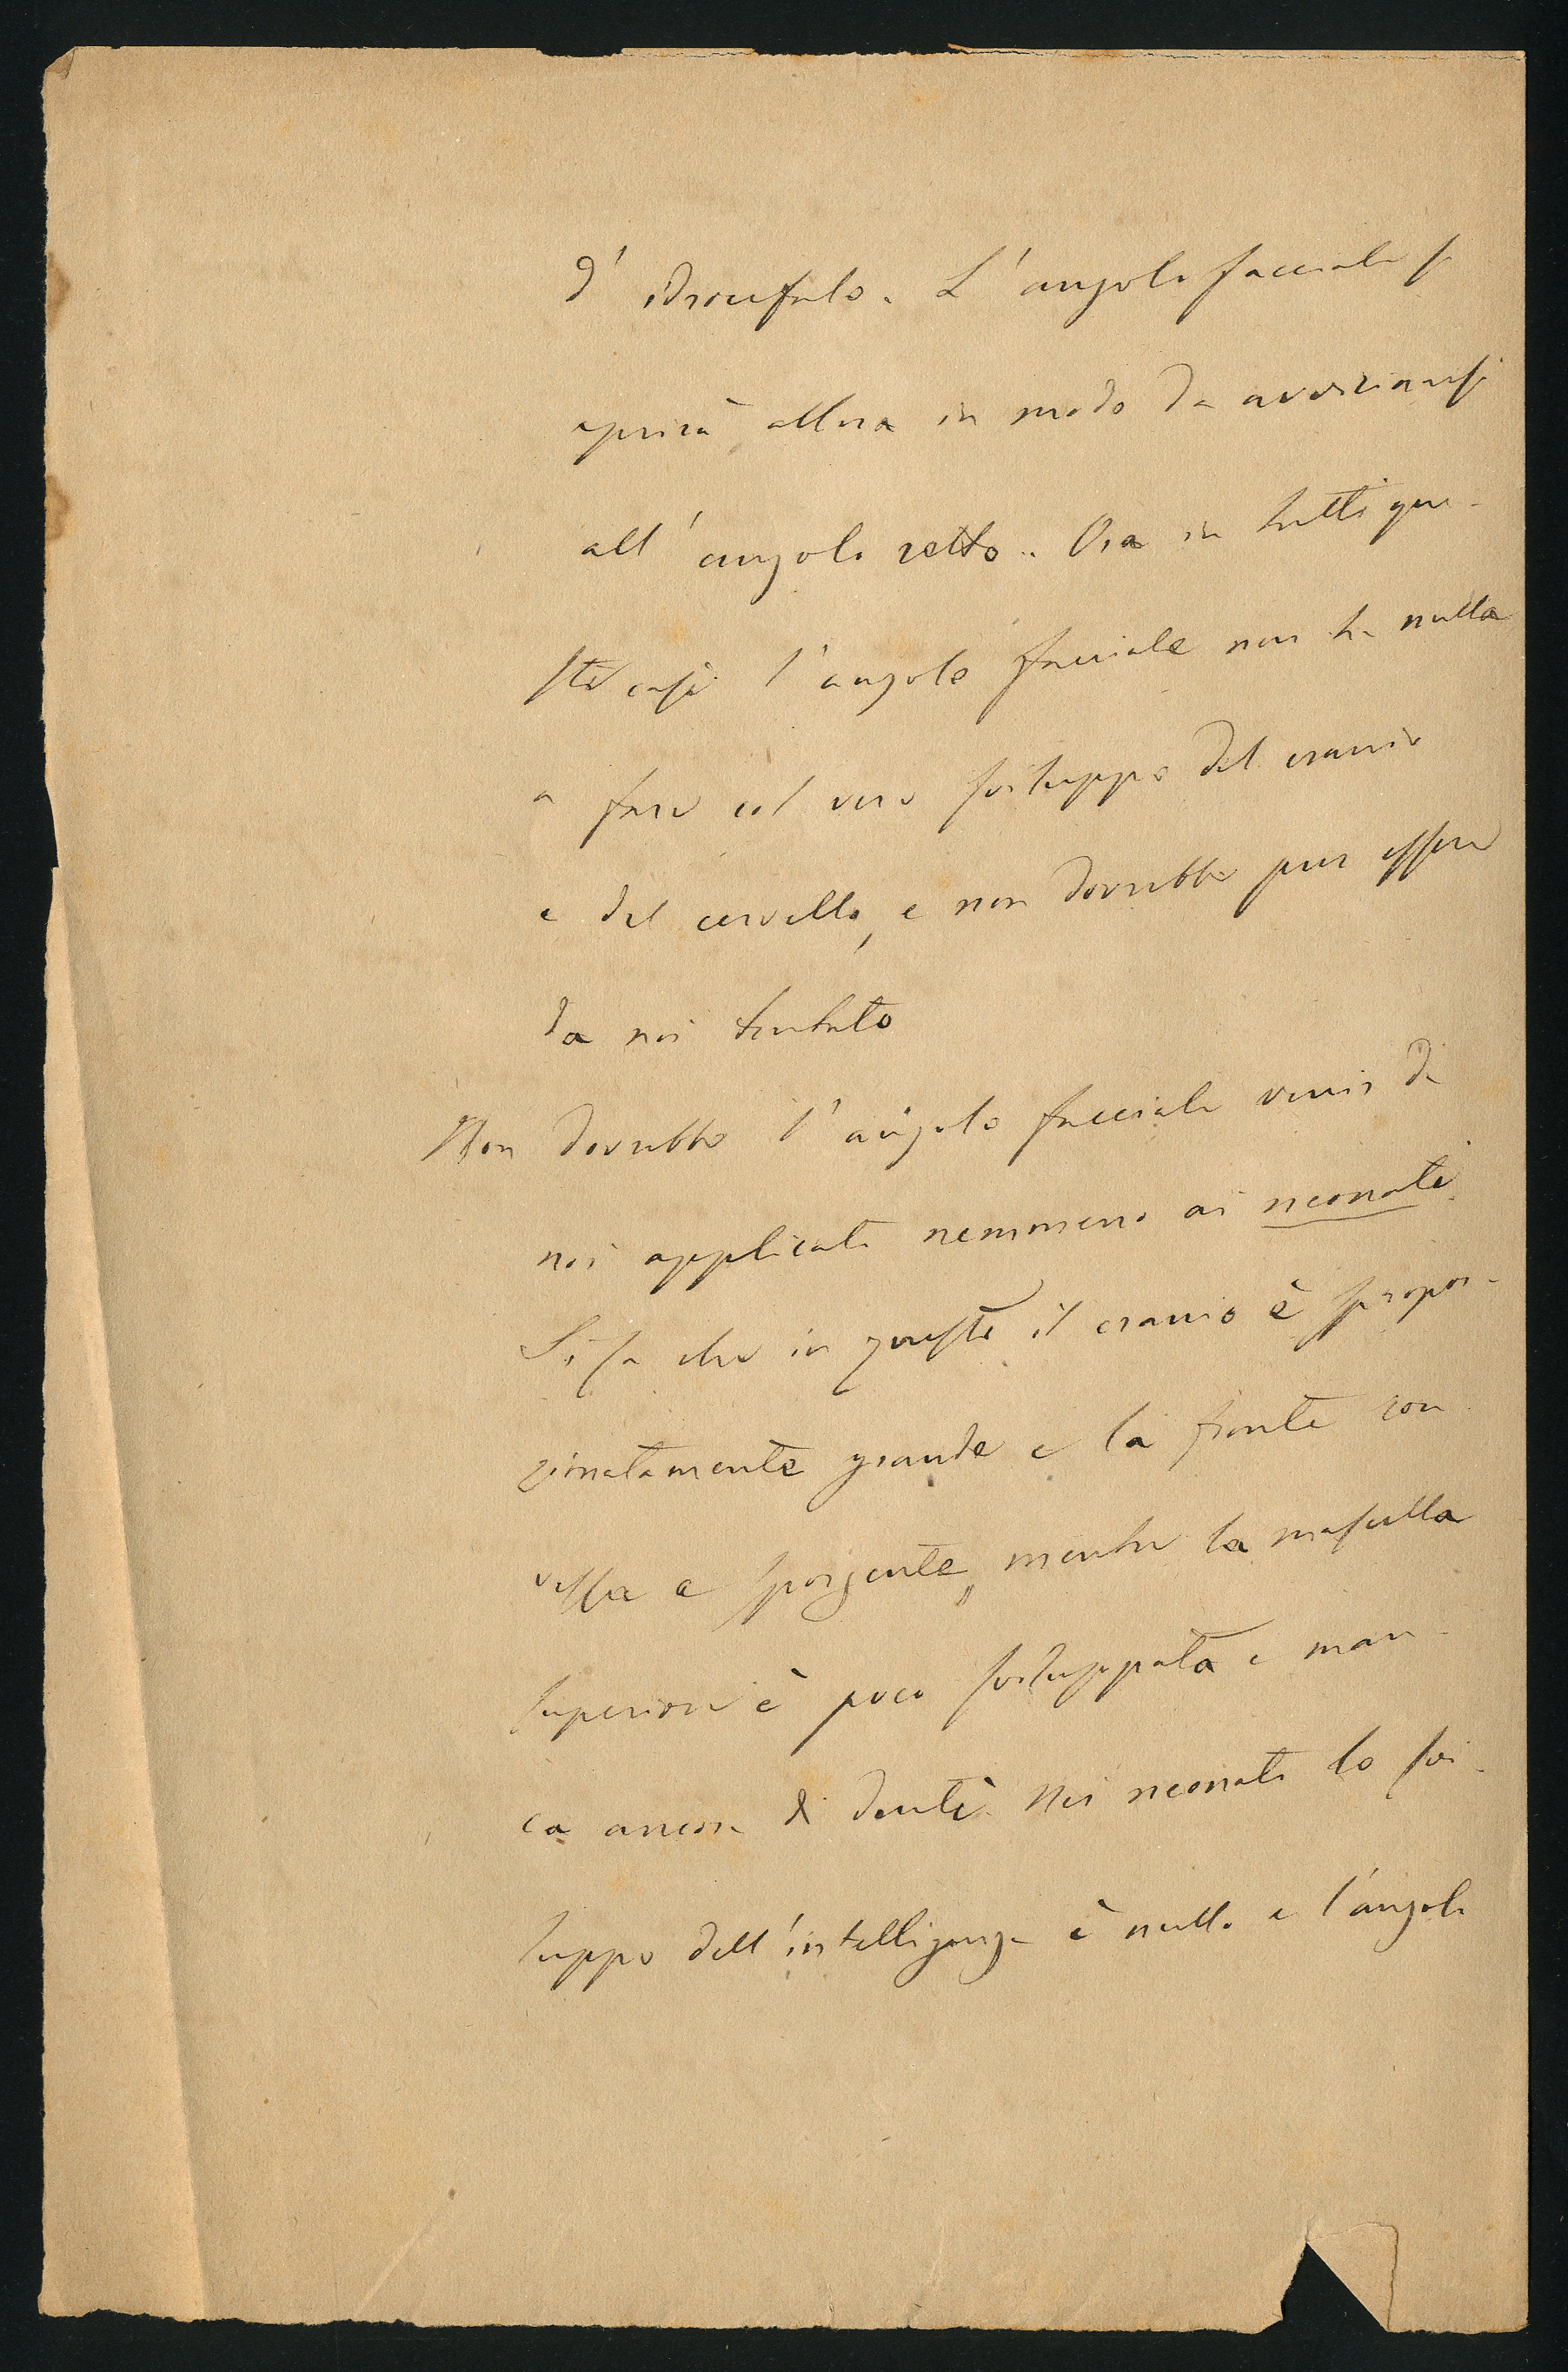 d' idrocefalo. L'angolo facciale si
aprirà allora in modo da avvicinarsi
all' angolo retto. Ora in tutti que-
sti casi l'angolo facciale non ha nulla
a fare col vero sviluppo del cranio
e del cervello, e non dovrebbe pur essere
da noi tentato
Non dovrebbe l'angolo facciale venir da
noi applicato nemmeno ai neonati.
Si sa che in questi il cranio è spropor-
zionatamente grande e la fronte con
vessa e sporgente, mentre la mascella
superiore è poco sviluppata e man-
ca ancora di denti. Nei neonati lo svi-
luppo dell'intelligenza è nullo e l'angolo